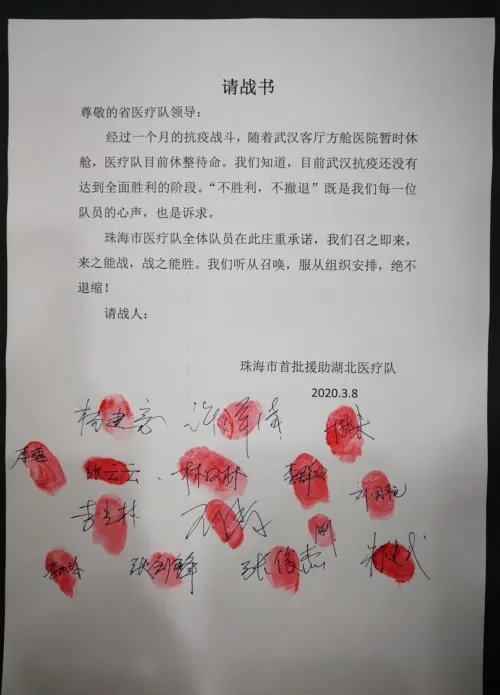 请战书
尊敬的省医疗队领导：
经过一个月的抗疫战斗，随着武汉客厅方舱医院暂时休
舱，医疗队目前休整待命。我们知道，目前武汉抗疫还没有
达到全面胜利的阶段。“不胜利，不撤退”既是我们每一位
队员的心声，也是诉求。
珠海市医疗队全体队员在此庄重承诺，我们召之即来，
来之能战，战之能胜。我们听从召唤，服从组织安排，绝不
退缩！
请战人：
珠海市首批援助湖北医疗队
2020.3.8
张云云
林汉林
李吉林
张剑锋
张俊杰